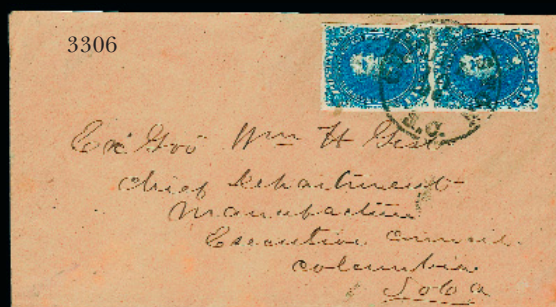 3306
S.C.
Ex Gov Wm H Gist
Chief Department
Manufacture
Executive Council
Columbia
So Ca